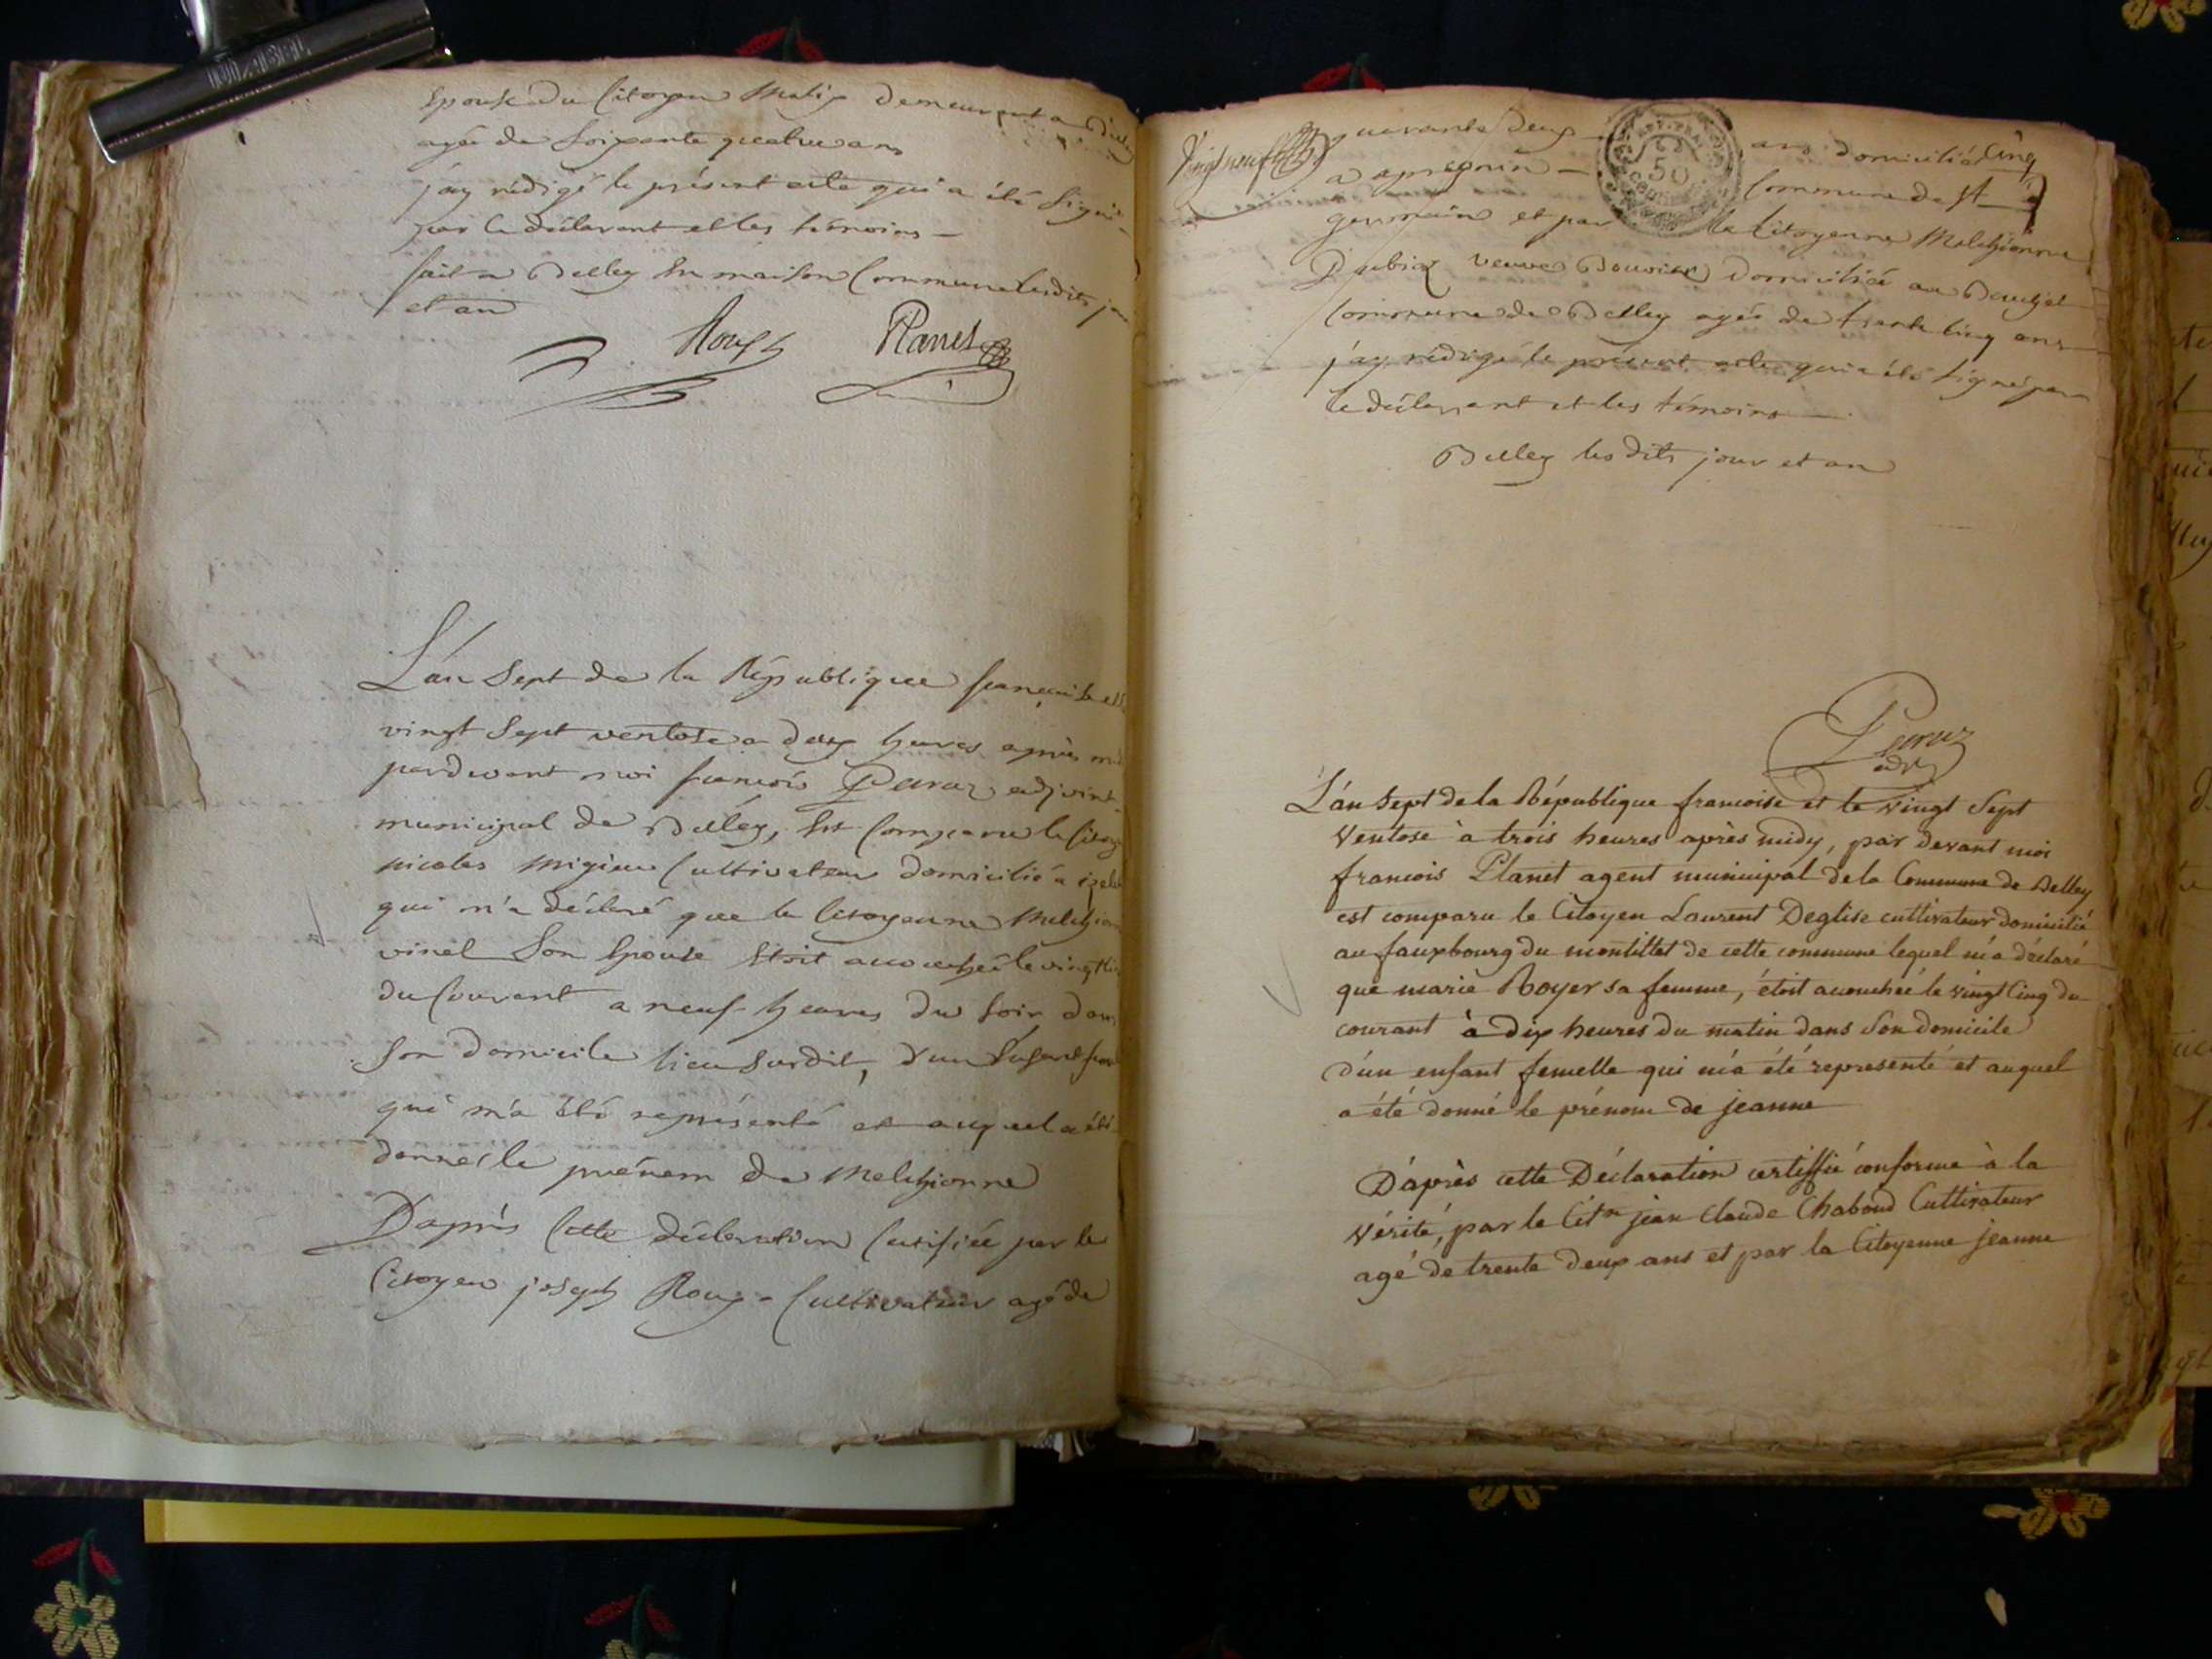 Epouse du Citoyen Matix demeurant a
agée de Soixante quatre ans
j'ay rédigé le présent acte qui a été signé
par le déclarant et les témoins
fait a Belley En maison Commune lesdits jour
et an
Roux Planet
L'an Sept de la République françoise et le
vingt Sept ventose a deux heures après mid
pardevant moi françois Peraz adjoint
municipal de Belley, Est Comparu le Citoy
nicolas migieu Cultivateur domicilié a
qui m'a déclaré que la Citoyenne Melchion
vinel Son Epouse Etoit accouchée le vingt
du Courant a neuf heures du Soir dans
Son Domicile lieu Susdit, d'un Enfant
qui m'a été représenté et auquel a été
donné le prénom de Melchionne
D'après Cette déclaration Certifiée par le
Citoyen joseph Roux Cultivateur agé de
Vingt neuf
quarante deux ans domicilié
a apregnin Commune de St
germain et par la Citoyenne Melchionne
Dubia veuve Bouvier Domiciliée au
Commune de Belley agée de trente Cinq ans
j'ay rédigé le présent acte qui a été signé par
le déclarant et les témoins
Belley les dits jour et an
REP. FRA
50
Peraz
adj
L'an Sept de la République francoise et le vingt Sept
Ventose à trois heures après midy, par devant moi
francois Planet agent municipal de la Commune de Belley
est comparu le Citoyen Laurent Deglise cultivateur domicilié
au fauxbourg du montillet de cette commune lequel m'a déclaré
que marie Royer sa femme, étoit accouchée le vingt Cinq du
courant à dix heures du matin dans Son domicile
d'un enfant femelle qui m'a été representé et auquel
a été donné le prénom de jeanne
D'après cette Déclaration certiffié conforme à la
Vérité, par le Citn jean Claude Chaboud Cultivateur
agé de trente deux ans et par la Citoyenne jeanne